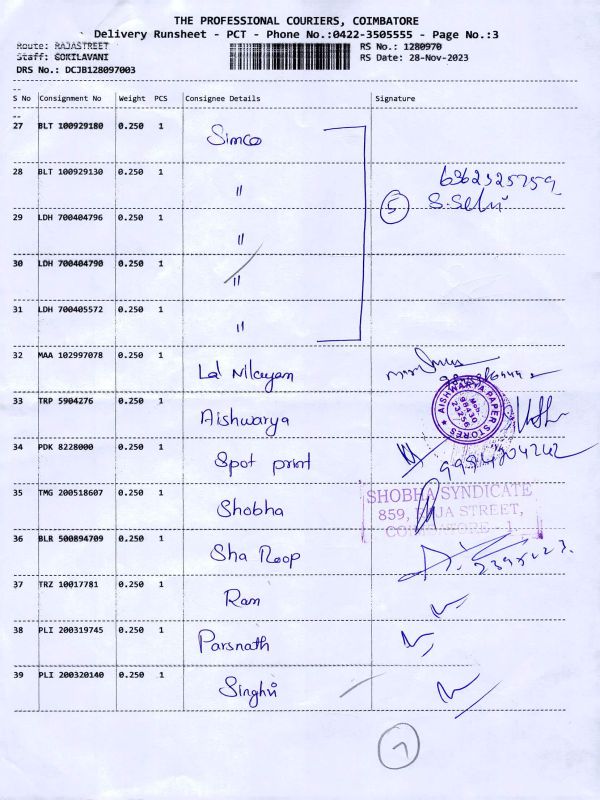 THE PROFESSIONAL COURIERS, COIMBATORE
Delivery Runsheet - PCT - Phone No.:0422-3505555 - Page No.:3
Route: RAJASTREET RS No.: 1280970
Staff: GOKILAVANI RS Date: 28-Nov-2023
DRS No.: DCJB128097003
S No Consignment No Weight PCS Consignee Details Signature
27 BLT 100929180 0.250 1 Simco
28 BLT 100929130 0.250 1 〃 6362325759
5 S.Selvi
29 LDH 700404796 0.250 1 〃
30 LDH 700404790 0.250 1 〃
31 LDH 700405572 0.250 1 〃
32 MAA 102997078 0.250 1 Lal Nilayam
33 TRP 5904276 0.250 1 Aishwarya AISHWARYA PAPER STORES
34 PDK 8228000 0.250 1 Spot print 9994204242
35 TMG 200518607 0.250 1 Shobha SHOBHA SYNDICATE
859, RAJA STREET,
COIMBATORE - 1.
36 BLR 500894709 0.250 1 Sha Roop
37 TRZ 10017781 0.250 1 Ram
38 PLI 200319745 0.250 1 Parsnath
39 PLI 200320140 0.250 1 Singhvi
7